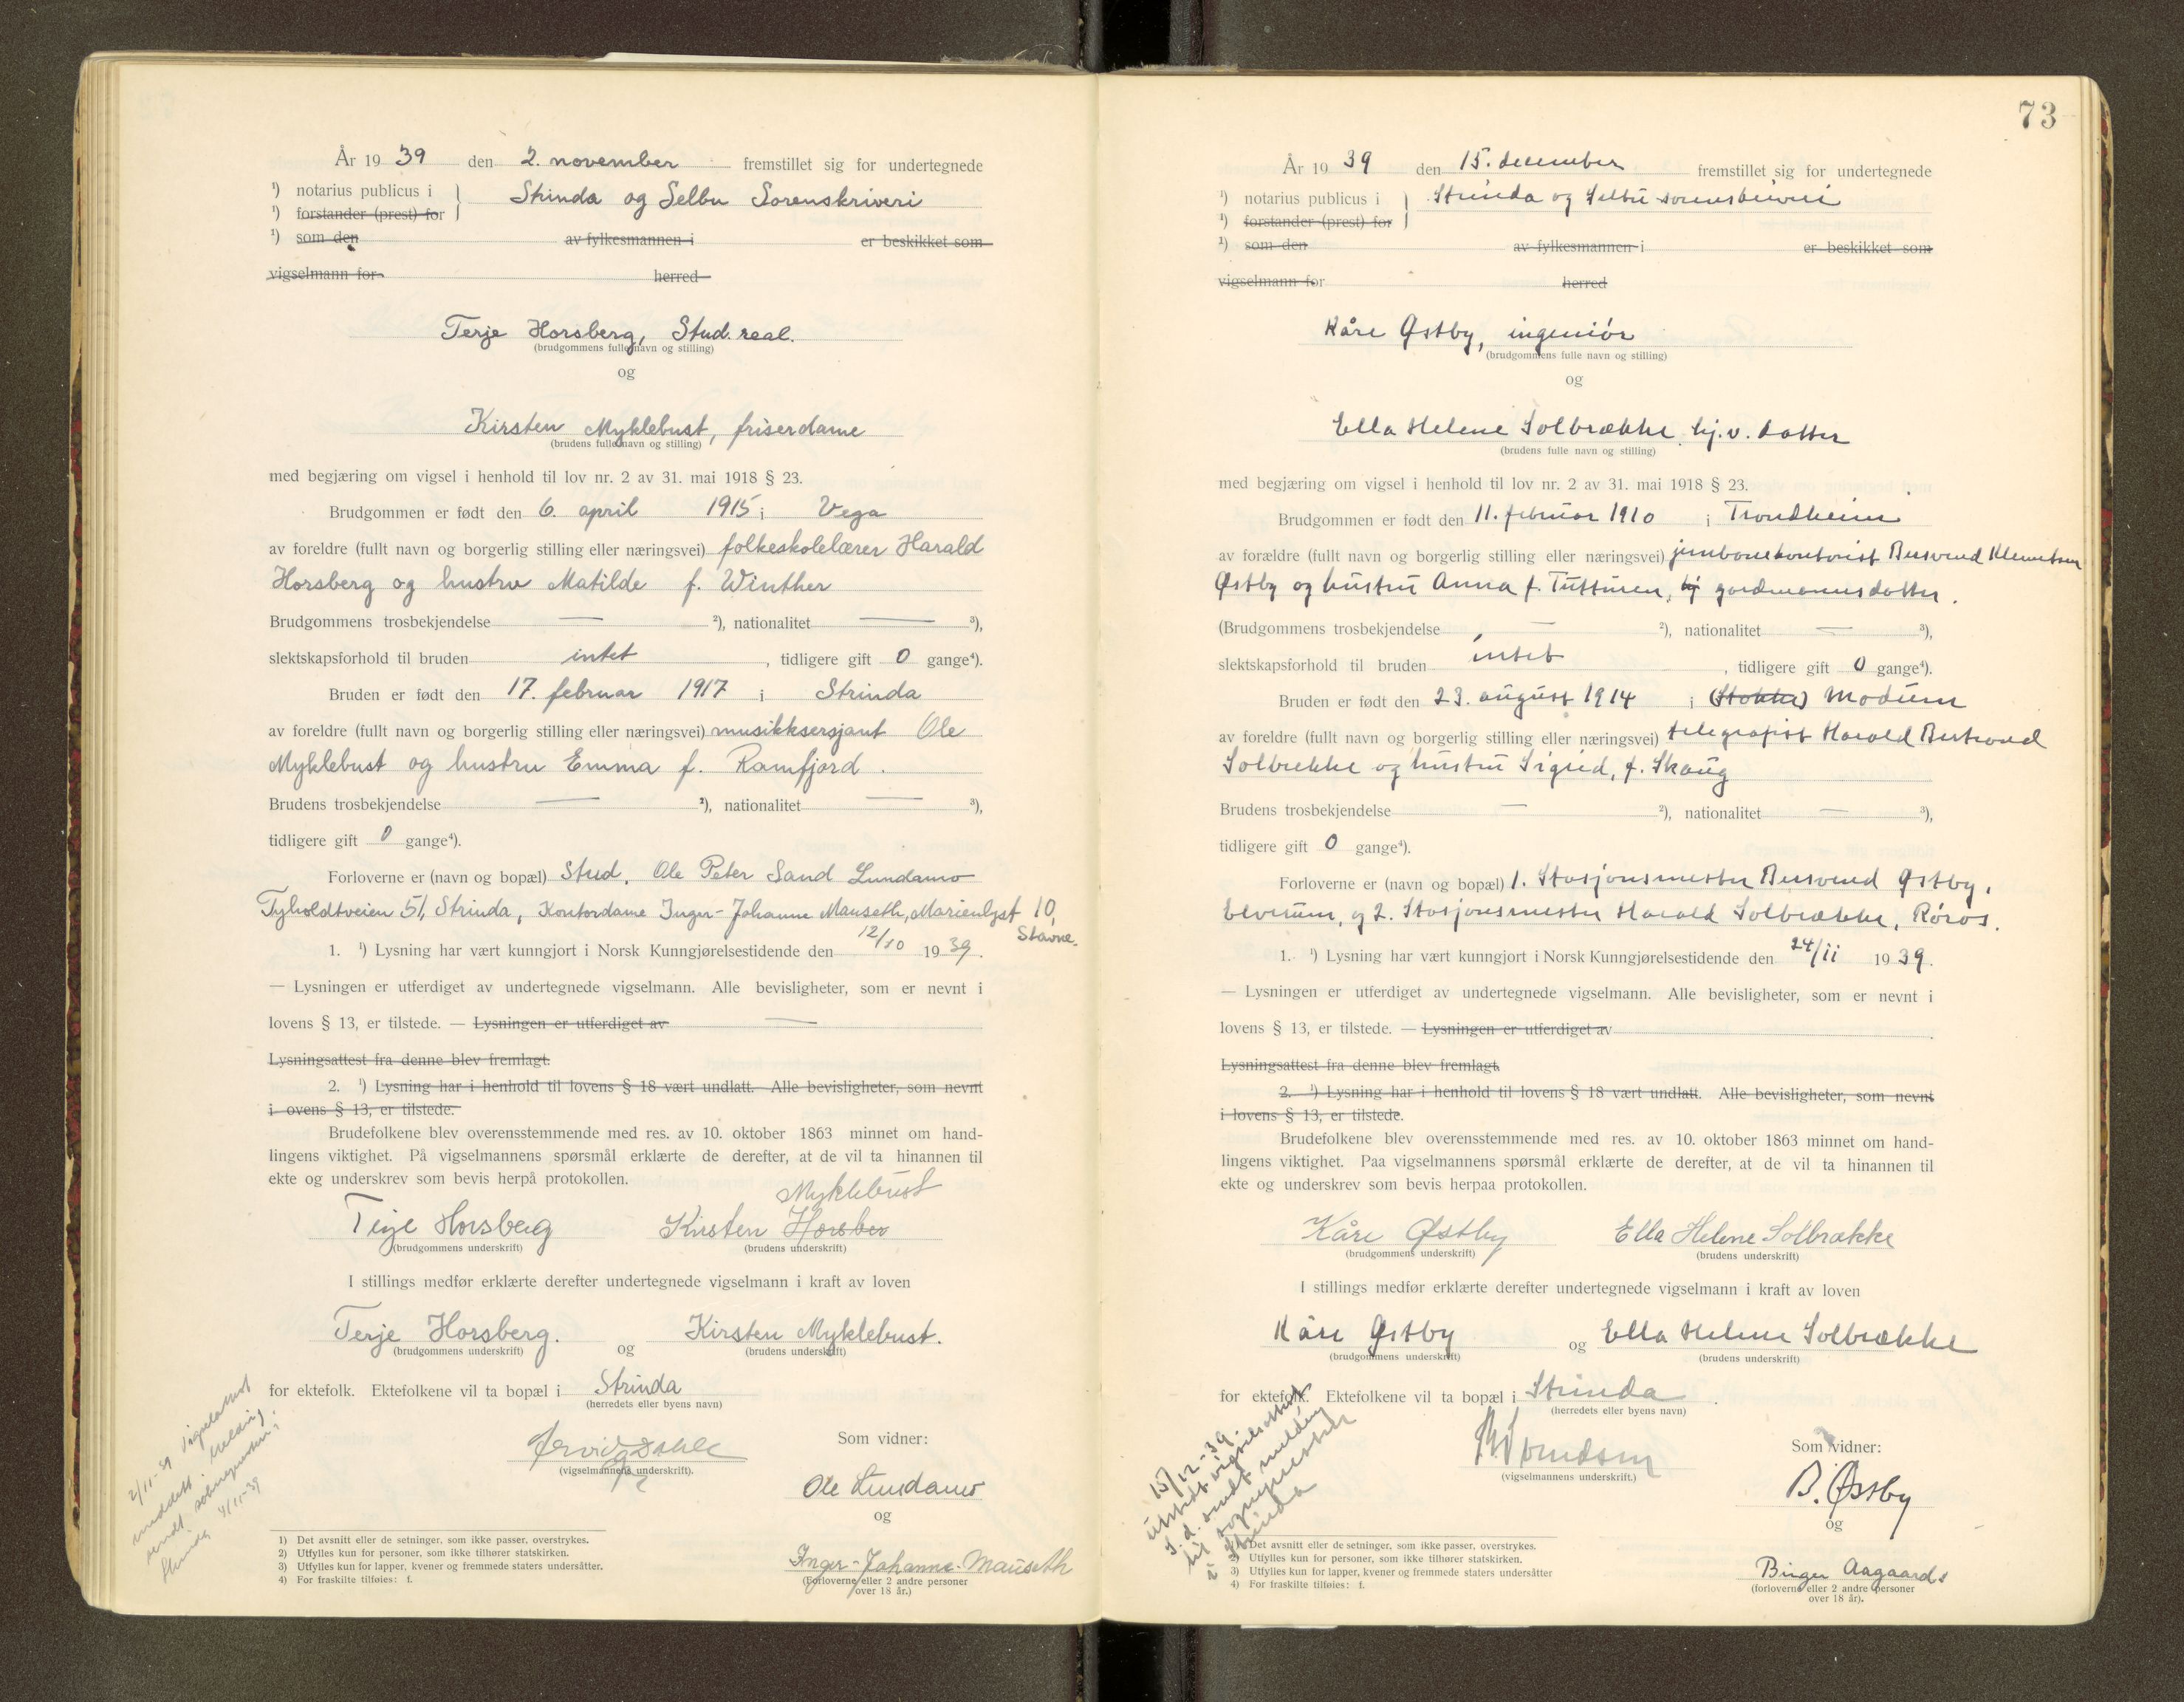 År 19 39 den 2. november fremstillet sig for undertegnede
¹) notarius publicus i } Strinda og Selbu Sorenskriveri
¹) forstander (prest) for
¹) som den av fylkesmannen i er beskikket som
vigselmann for herred
Terje Horsberg, Stud. real.
(brudgommens fulle navn og stilling)
og
Kirsten Myklebust, friserdame
(brudens fulle navn og stilling)
med begjæring om vigsel i henhold til lov nr. 2 av 31. mai 1918 § 23.
Brudgommen er født den 6. april 1915 i Vega
av foreldre (fullt navn og borgerlig stilling eller næringsvei) folkeskolelærer Harald
Horsberg og hustru Matilde f. Winther
Brudgommens trosbekjendelse — ²), nationalitet — ³),
slektskapsforhold til bruden intet, tidligere gift 0 gange⁴).
Bruden er født den 17. februar 1917 i Strinda
av foreldre (fullt navn og borgerlig stilling eller næringsvei) musikksersjant Ole
Myklebust og hustru Emma f. Ramfjord.
Brudens trosbekjendelse — ²), nationalitet — ³),
tidligere gift 0 gange⁴).
Forloverne er (navn og bopæl) Stud. Ole Peter Sand Lundamo
Tyholdtveien 51, Strinda, Kontordame Inger-Johanne Mauseth, Marienlyst 10,
Stavne.
1. ¹) Lysning har vært kunngjort i Norsk Kunngjørelsestidende den 12/10 19 39.
— Lysningen er utferdiget av undertegnede vigselmann. Alle bevisligheter, som er nevnt i
lovens § 13, er tilstede. — Lysningen er utferdiget av —
Lysningsattest fra denne blev fremlagt.
2. ¹) Lysning har i henhold til lovens § 18 vært undlatt. Alle bevisligheter, som nevnt
i ovens § 13, er tilstede.
Brudefolkene blev overensstemmende med res. av 10. oktober 1863 minnet om hand-
lingens viktighet. På vigselmannens spørsmål erklærte de derefter, at de vil ta hinannen til
ekte og underskrev som bevis herpå protokollen.
Myklebust
Terje Horsberg Kirsten Horsber
(brudgommens underskrift) (brudens underskrift)
I stillings medfør erklærte derefter undertegnede vigselmann i kraft av loven
Terje Horsberg. og Kirsten Myklebust.
(brudgommens underskrift) (brudens underskrift)
for ektefolk. Ektefolkene vil ta bopæl i Strinda
(herredets eller byens navn)
(vigselmannens underskrift).
Som vidner:
Ole Lundamo
og
Inger-Johanne Mauseth
(Forloverne eller 2 andre personer
over 18 år.)
2/11-39 Vigselattest
meddelt. Melding
sendt sokneprest i
Strinda 4/11-39
1) Det avsnitt eller de setninger, som ikke passer, overstrykes.
2) Utfylles kun for personer, som ikke tilhører statskirken.
3) Utfylles kun for lapper, kvener og fremmede staters undersåtter.
4) For fraskilte tilføies: f.
73
År 19 39 den 15. december fremstillet sig for undertegnede
¹) notarius publicus i } Strinda og Selbu sorenskriveri
¹) forstander (prest) for
¹) som den av fylkesmannen i er beskikket som
vigselmann for herred
Kåre Østby, ingeniør
(brudgommens fulle navn og stilling)
og
Ella Helene Solbrække, hj.v. datter
(brudens fulle navn og stilling)
med begjæring om vigsel i henhold til lov nr. 2 av 31. mai 1918 § 23.
Brudgommen er født den 11. februar 1910 i Trondheim
av forældre (fullt navn og borgerlig stilling eller næringsvei) jernbanekontorist Bersvend Klemetsen
Østby og hustru Anna f. Tutturen, gardmannsdatter.
(Brudgommens trosbekjendelse — ²), nationalitet — ³),
slektskapsforhold til bruden intet, tidligere gift 0 gange⁴).
Bruden er født den 23. august 1914 i (Stokke) Modum
av foreldre (fullt navn og borgerlig stilling eller næringsvei) telegrafist Harald Bertrand
Solbrekke og hustru Sigrid, f. Skaug
Brudens trosbekjendelse — ²), nationalitet — ³),
tidligere gift 0 gange⁴).
Forloverne er (navn og bopæl) 1. Stasjonsmester Bersvend Østby,
Elverum, og 2. Stasjonsmester Harald Solbrække, Røros.
1. ¹) Lysning har vært kunngjort i Norsk Kunngjørelsestidende den 24/11 19 39.
— Lysningen er utferdiget av undertegnede vigselmann. Alle bevisligheter, som er nevnt i
lovens § 13, er tilstede. — Lysningen er utferdiget av .
Lysningsattest fra denne blev fremlagt.
2. ¹) Lysning har i henhold til lovens § 18 vært undlatt. Alle bevisligheter, som nevnt
i lovens § 13, er tilstede.
Brudefolkene blev overensstemmende med res. av 10. oktober 1863 minnet om hand-
lingens viktighet. Paa vigselmannens spørsmål erklærte de derefter, at de vil ta hinannen til
ekte og underskrev som bevis herpaa protokollen.
Kåre Østby Ella Helene Solbrække
(brudgommens underskrift) (brudens underskrift)
I stillings medfør erklærte derefter undertegnede vigselmann i kraft av loven
Kåre Østby og Ella Helene Solbrække
(brudgommens underskrift) (brudens underskrift)
for ektefolk. Ektefolkene vil ta bopæl i Strinda.
(herredets eller byens navn)
(vigselmannens underskrift.)
Som vidner:
B. Østby
og
Birger Aagaard
(forloverne eller 2 andre personer
over 18 år).
15/12-39.
utstedt vigselsattest
S. d. sendt melding
til sogneprest
i Strinda
1) Det avsnitt eller de setninger, som ikke passer, overstrykes.
2) Utfylles kun for personer, som ikke tilhører statskirken.
3) Utfylles kun for lapper, kvener og fremmede staters undersåtter
4) For fraskilte tilføies: f.